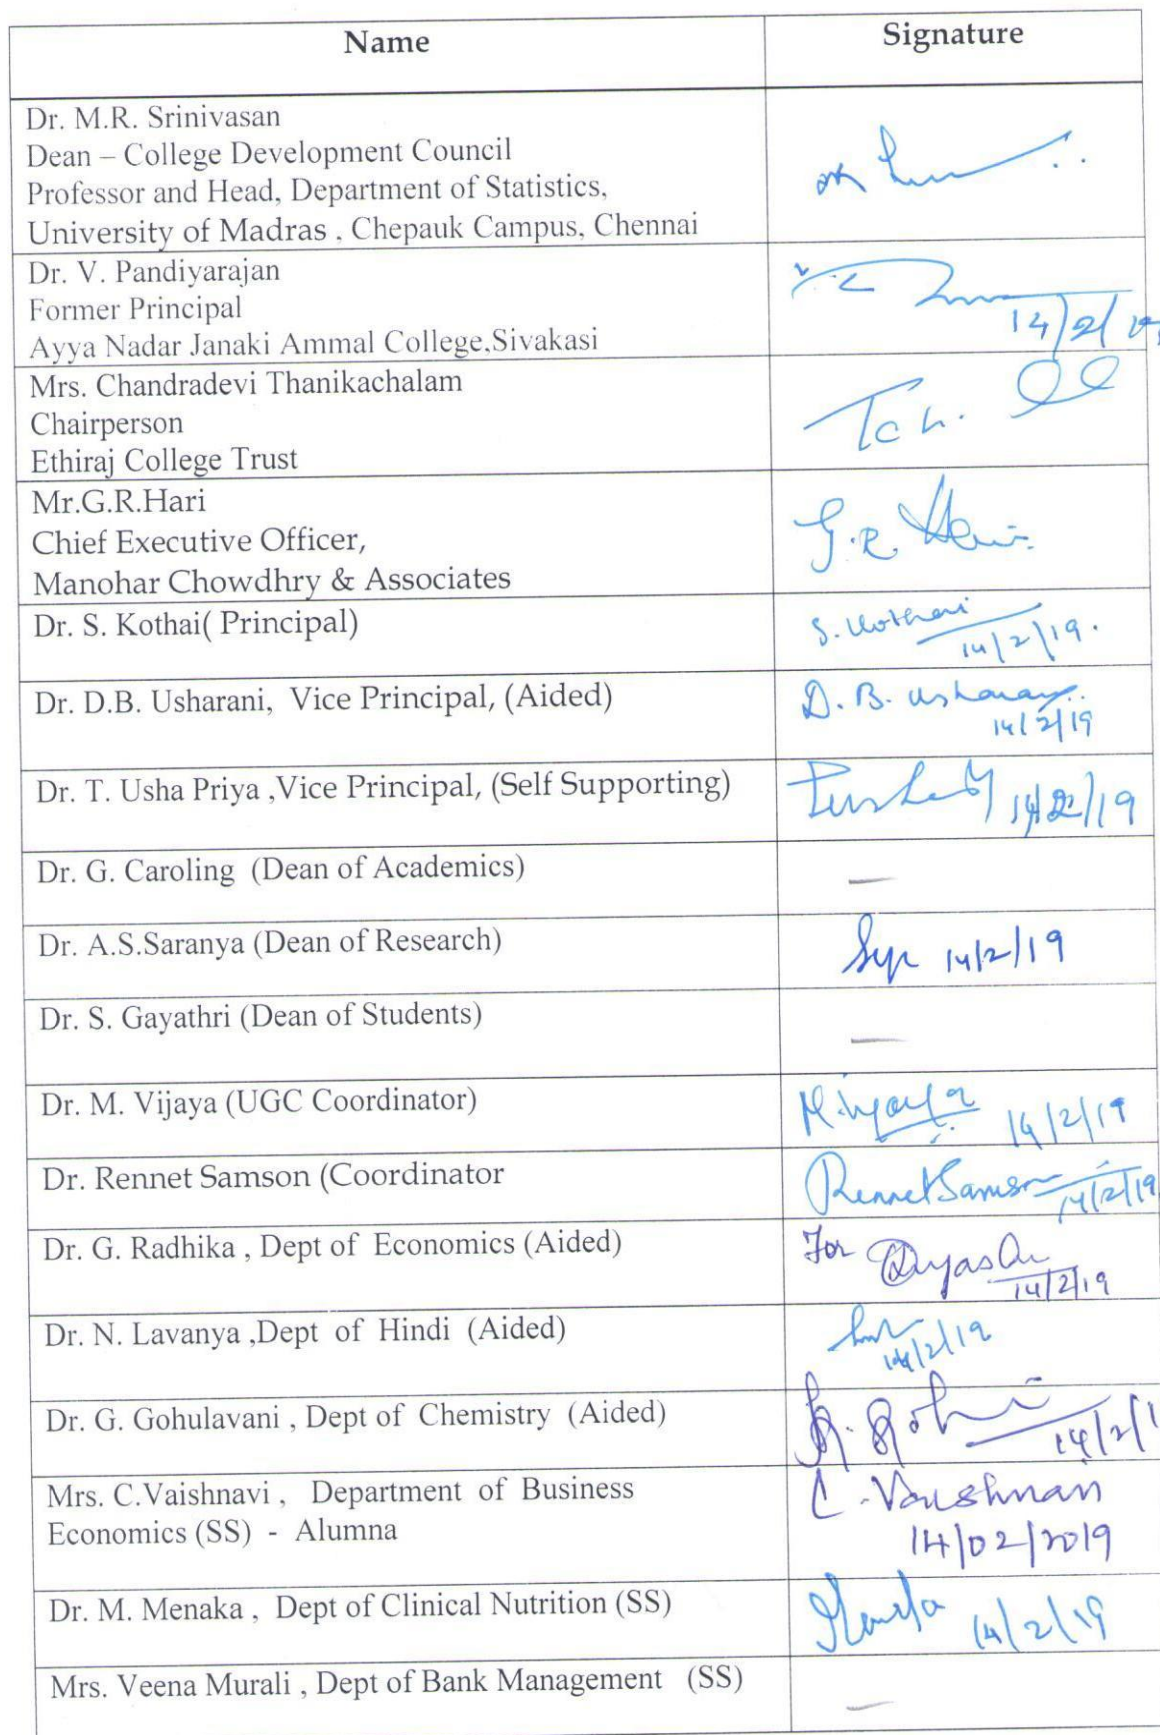 Name Signature
Dr. M.R. Srinivasan
Dean – College Development Council
Professor and Head, Department of Statistics,
University of Madras , Chepauk Campus, Chennai
Dr. V. Pandiyarajan
Former Principal
Ayya Nadar Janaki Ammal College,Sivakasi
14/2/19
Mrs. Chandradevi Thanikachalam
Chairperson
Ethiraj College Trust
Mr.G.R.Hari
G.R. Hari
Chief Executive Officer,
Manohar Chowdhry & Associates
Dr. S. Kothai( Principal) S. Kothai
14/2/19.
Dr. D.B. Usharani, Vice Principal, (Aided) D. B. Usharani
14/2/19
Dr. T. Usha Priya ,Vice Principal, (Self Supporting) 14/2/19
Dr. G. Caroling (Dean of Academics) —
Dr. A.S.Saranya (Dean of Research) 14/2/19
Dr. S. Gayathri (Dean of Students) —
Dr. M. Vijaya (UGC Coordinator) M. Vijaya 14/2/19
Dr. Rennet Samson (Coordinator Rennet Samson 14/2/19
Dr. G. Radhika , Dept of Economics (Aided) For
14/2/19
Dr. N. Lavanya ,Dept of Hindi (Aided)
14/2/19
Dr. G. Gohulavani , Dept of Chemistry (Aided)
14/2/1
Mrs. C.Vaishnavi , Department of Business C. Vaishnavi
Economics (SS) - Alumna 14/02/2019
Dr. M. Menaka , Dept of Clinical Nutrition (SS) 14/2/19
Mrs. Veena Murali , Dept of Bank Management (SS) —